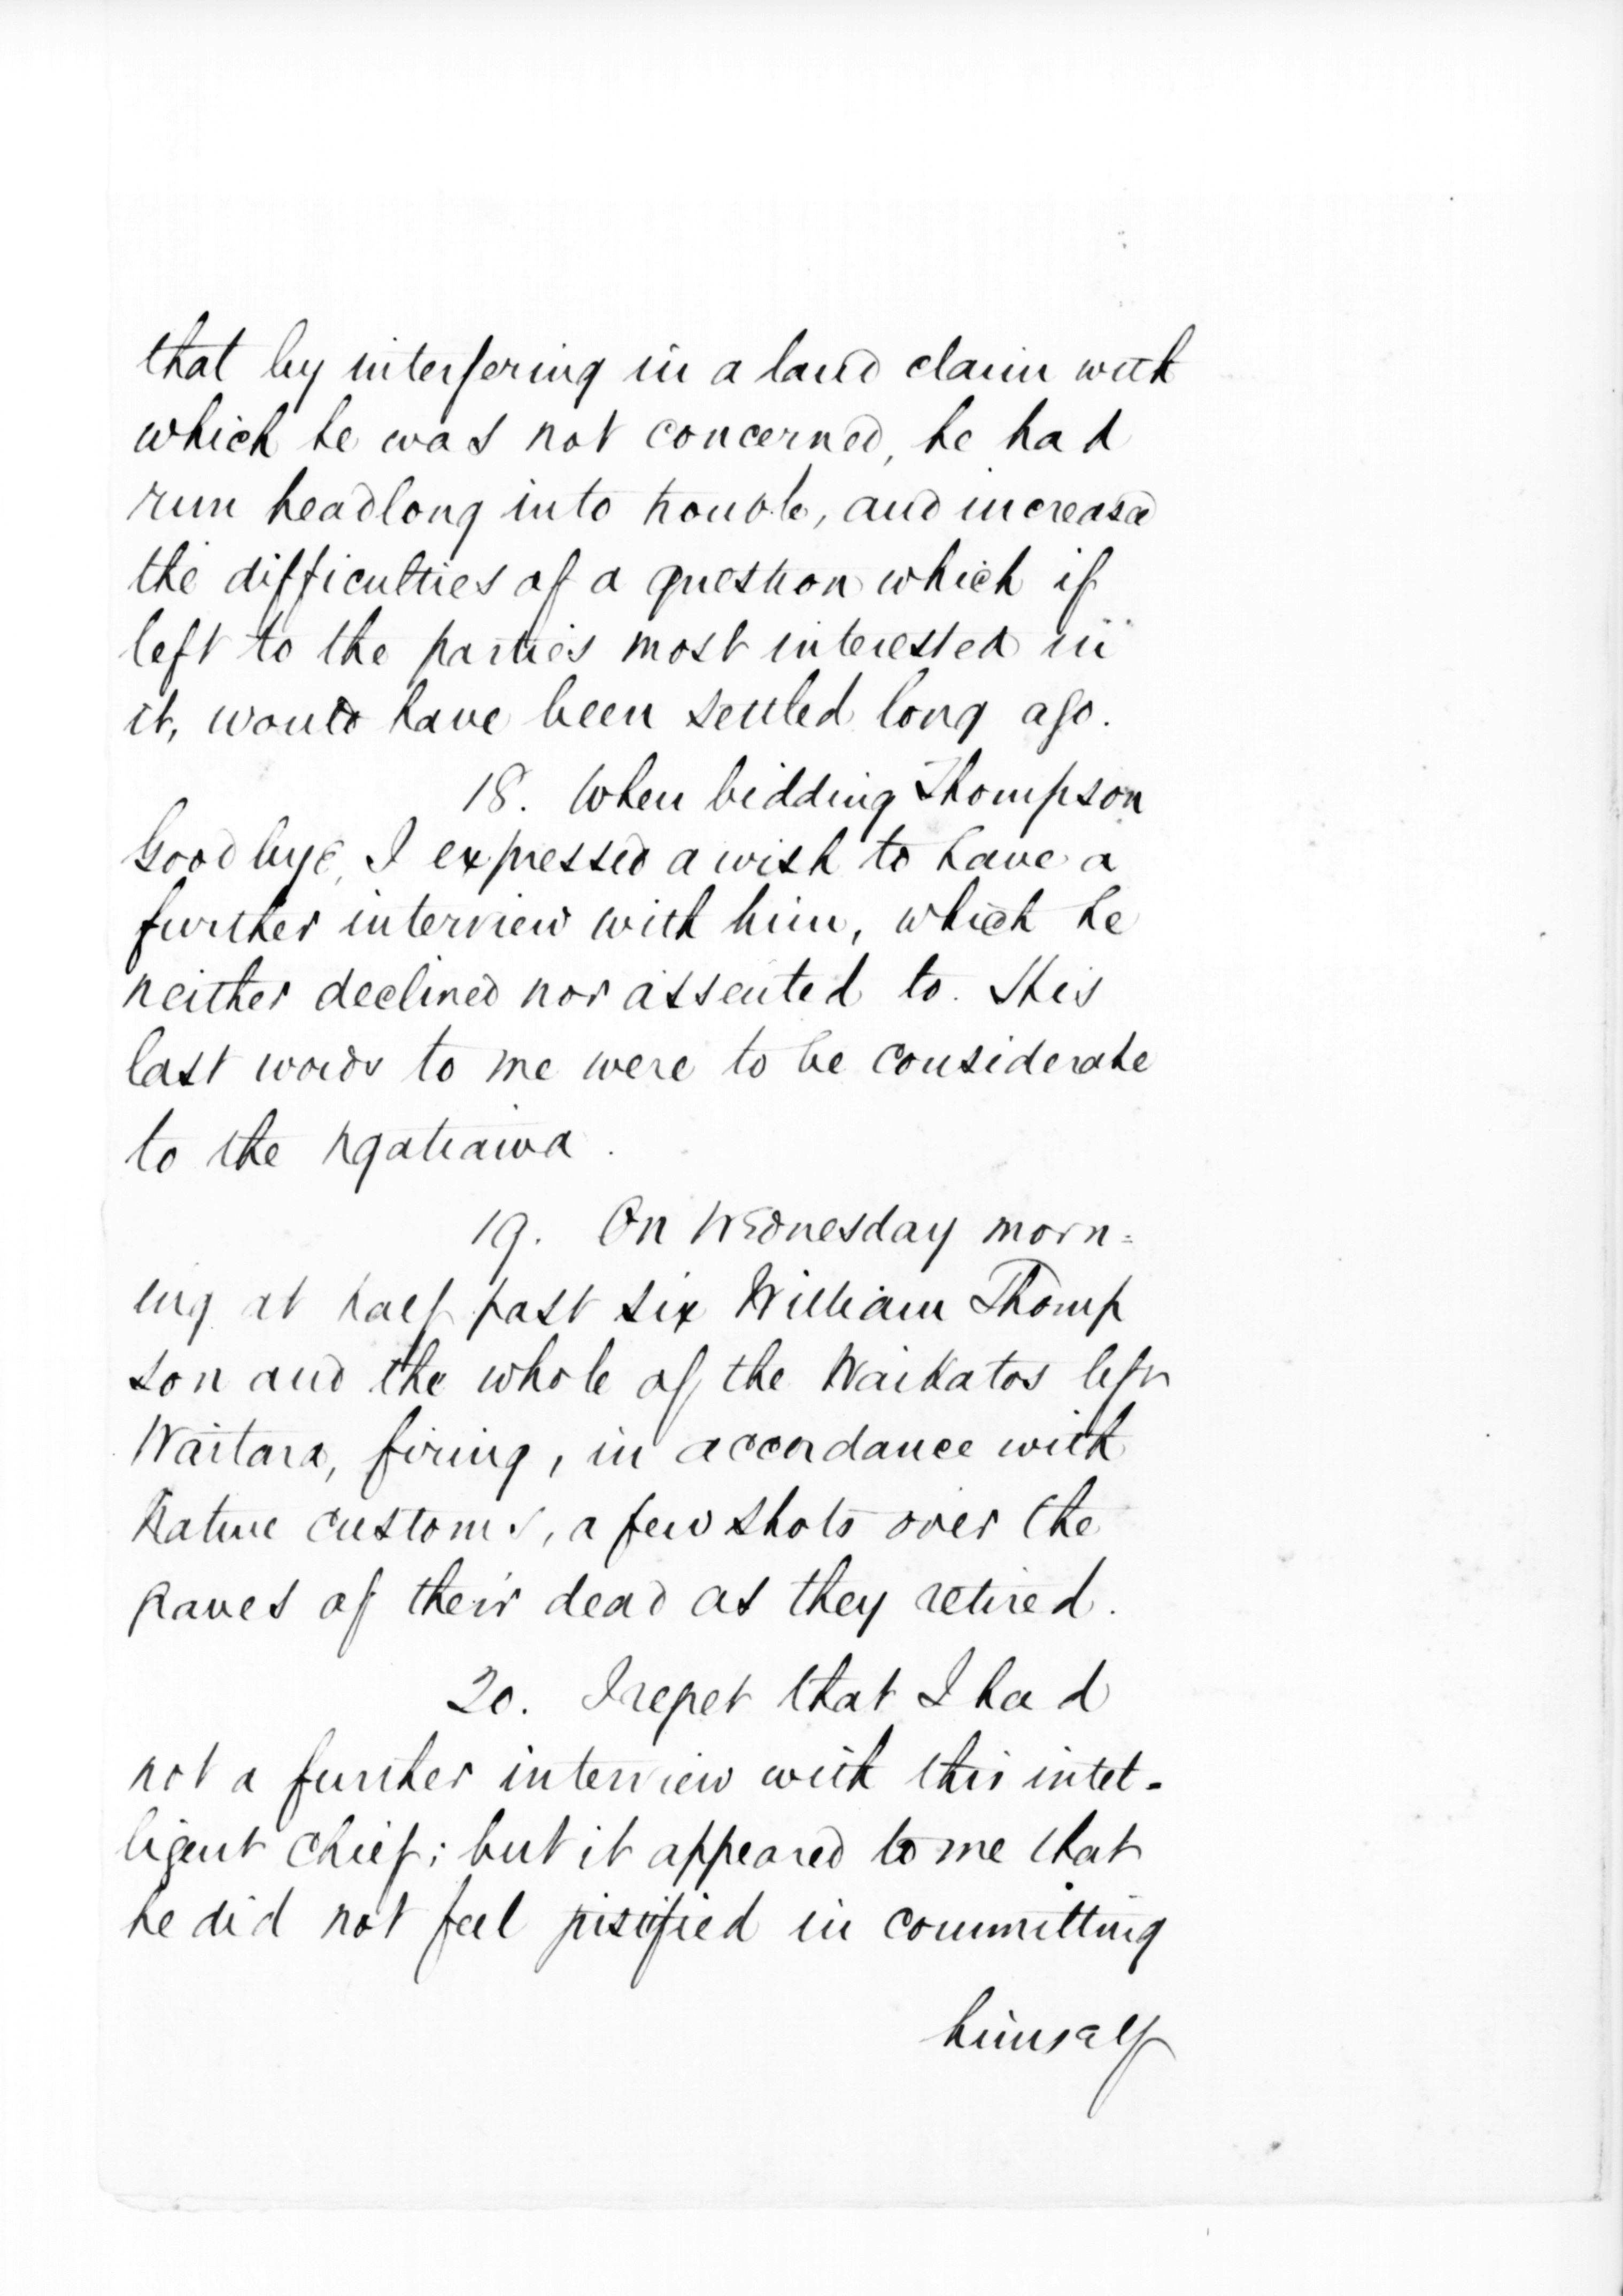 that by interfering in a land claim with
which he was not concerned, he had
run headlong into trouble, and increased
the difficulties of a question which if
left to the parties most interested in
it, would have been settled long ago.
18. When bidding Thompson
Good bye, I expressed a wish to have a
further interview with him, which he
neither declined nor assented to. His
last words to me were to be considerate
to the Ngatiawa.
19. On Wednesday morn=
ing at half past six William Thomp
son and the whole of the Waikatos left
Waitara, firing, in accordance with
Native customs, a few shots over the
graves of their dead as they retired.
20. I regret that I had
not a further interview with this intel-
ligent chief; but it appeared to me that
he did not feel justified in committing
himself